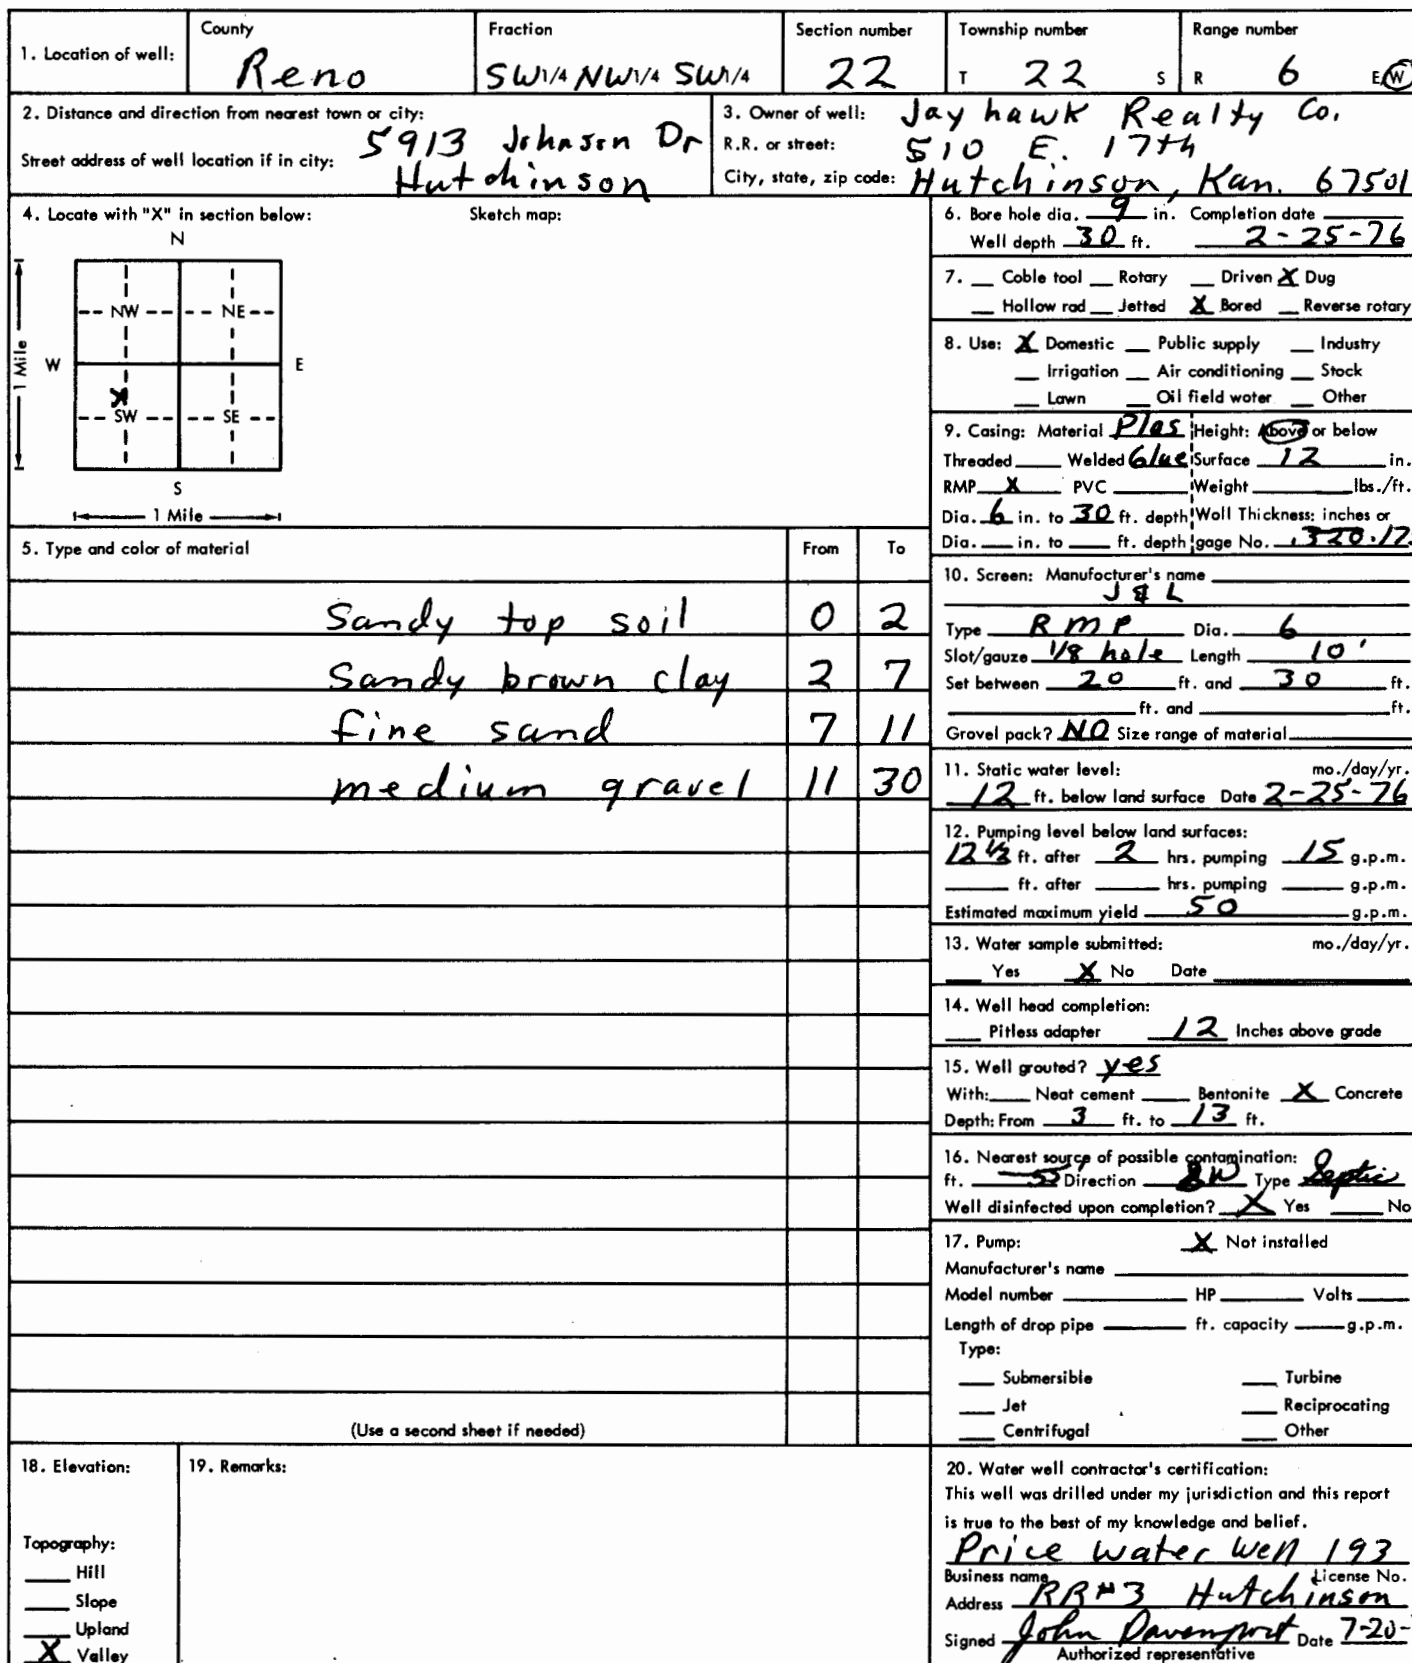 County Fraction Section number Township number Range number
1. Location of well: Reno SW1/4 NW1/4 SW1/4 22 T 22 S R 6 E/W
2. Distance and direction from nearest town or city:
Street address of well location if in city: 5913 Johnson Dr
Hutchinson
3. Owner of well: Jayhawk Realty Co.
R.R. or street: 510 E. 17th
City, state, zip code: Hutchinson, Kan. 67501
4. Locate with "X" in section below: Sketch map:
N
NW NE
W E
X
SW SE
S
1 Mile
1 Mile
5. Type and color of material From To
Sandy top soil 0 2
Sandy brown clay 2 7
fine sand 7 11
medium gravel 11 30
(Use a second sheet if needed)
6. Bore hole dia. 9 in. Completion date
Well depth 30 ft. 2-25-76
7. __ Cable tool __ Rotary __ Driven X Dug
__ Hollow rod __ Jetted X Bored __ Reverse rotary
8. Use: X Domestic __ Public supply __ Industry
__ Irrigation __ Air conditioning __ Stock
__ Lawn __ Oil field water __ Other
9. Casing: Material Plas Height: Above or below
Threaded ____ Welded Glue Surface 12 in.
RMP X PVC ____ Weight ____ lbs./ft.
Dia. 6 in. to 30 ft. depth Wall Thickness: inches or
Dia. __ in. to __ ft. depth gage No.
10. Screen: Manufacturer's name
J & L
Type RMP Dia. 6
Slot/gauze 1/8 hole Length 10'
Set between 20 ft. and 30 ft.
____ ft. and ____ ft.
Gravel pack? NO Size range of material
11. Static water level: mo./day/yr.
12 ft. below land surface Date 2-25-76
12. Pumping level below land surfaces:
12 1/2 ft. after 2 hrs. pumping 15 g.p.m.
____ ft. after ____ hrs. pumping ____ g.p.m.
Estimated maximum yield 50 g.p.m.
13. Water sample submitted: mo./day/yr.
__ Yes X No Date
14. Well head completion:
__ Pitless adapter 12 Inches above grade
15. Well grouted? yes
With: __ Neat cement __ Bentonite X Concrete
Depth: From 3 ft. to 13 ft.
16. Nearest source of possible contamination:
ft. Direction SW Type Septic
Well disinfected upon completion? X Yes __ No
17. Pump: X Not installed
Manufacturer's name
Model number ____ HP ____ Volts ____
Length of drop pipe ____ ft. capacity ____ g.p.m.
Type:
__ Submersible __ Turbine
__ Jet __ Reciprocating
__ Centrifugal __ Other
18. Elevation:
Topography:
__ Hill
__ Slope
__ Upland
X Valley
19. Remarks:
20. Water well contractor's certification:
This well was drilled under my jurisdiction and this report
is true to the best of my knowledge and belief.
Price Water Well 193
Business name License No.
Address RR#3 Hutchinson
Signed John Davenport Date 7-20-
Authorized representative